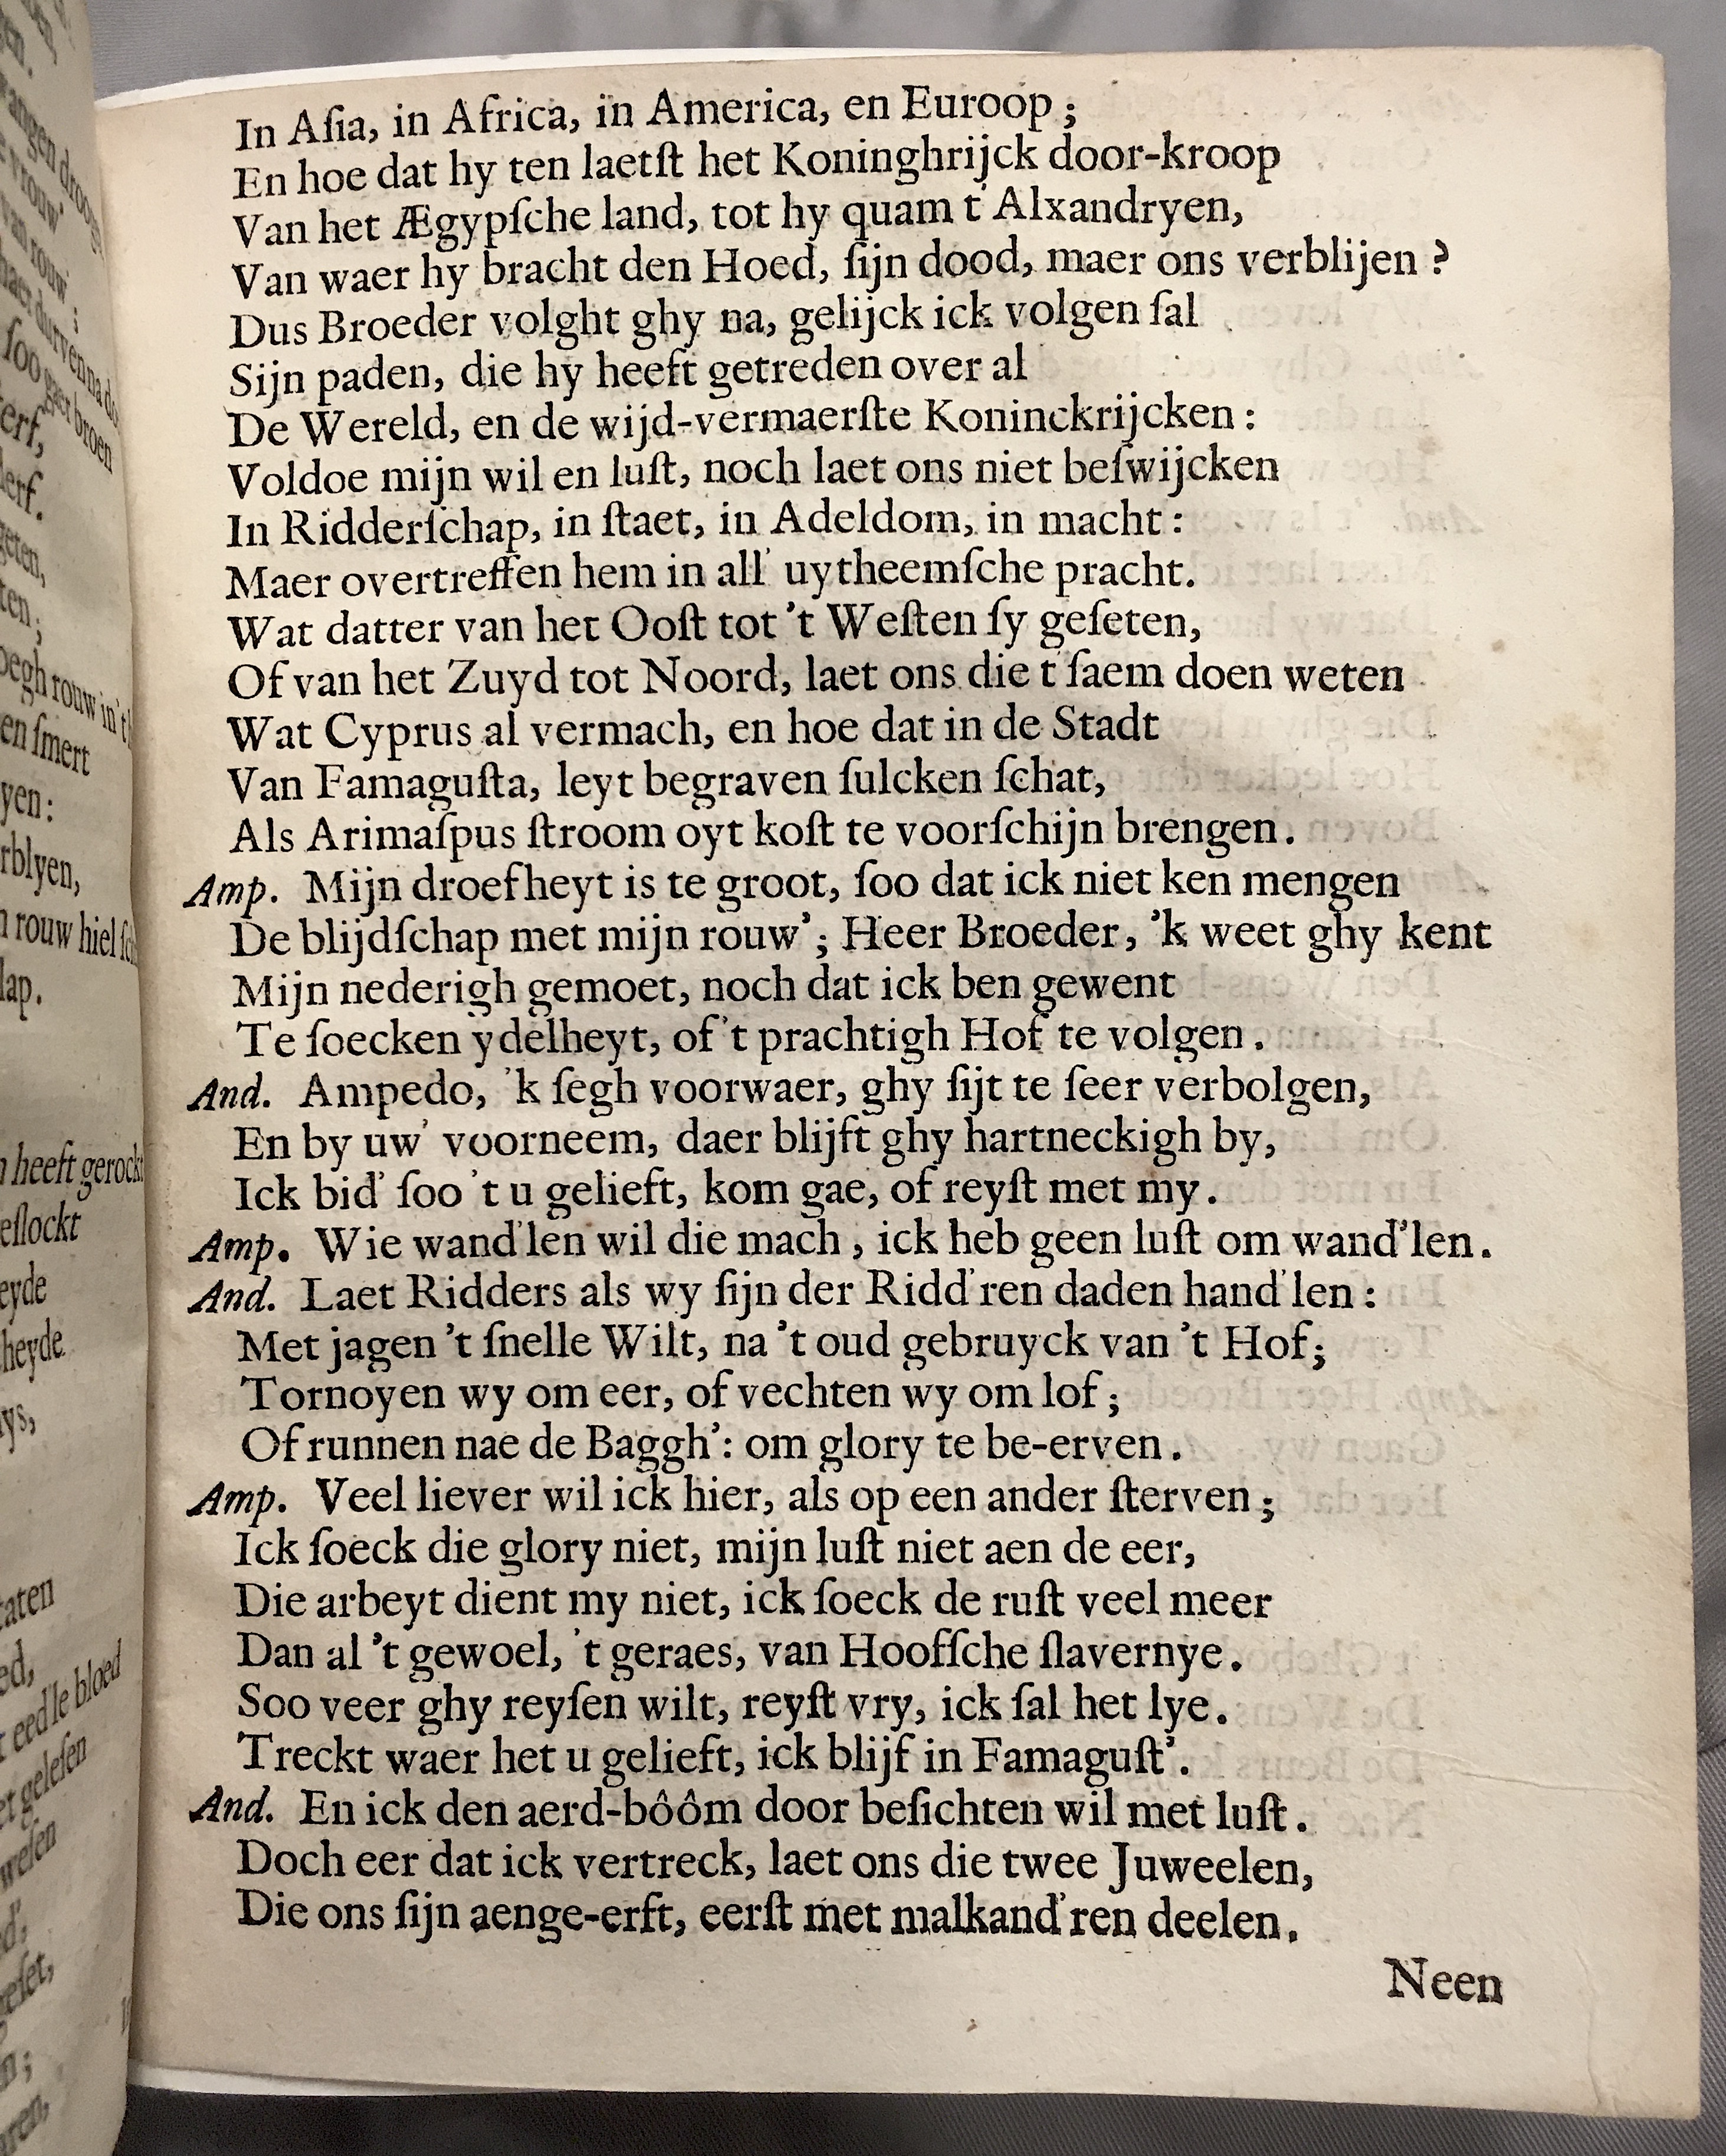 In Aſia, in Africa, in America, en Euroop;
En hoe dat hy ten laetſt het Koninghrijck door-kroop
Van het Ægypſche land, tot hy quam t' Alxandryen,
Van waer hy bracht den Hoed, ſijn dood, maer ons verblijen?
Dus Broeder volght ghy na, gelijck ick volgen ſal
Sijn paden, die hy heeft getreden over al
De Wereld, en de wijd-vermaerſte Koninckrijcken:
Voldoe mijn wil en luſt, noch laet ons niet beſwijcken
In Ridderſchap, in ſtaet, in Adeldom, in macht:
Maer overtreffen hem in all' uytheemſche pracht.
Wat datter van het Ooſt tot 't Weſten ſy geſeten,
Of van het Zuyd tot Noord, laet ons die t' ſaem doen weten
Wat Cyprus al vermach, en hoe dat in de Stadt
Van Famaguſta, leyt begraven ſulcken ſchat,
Als Arimaſpus ſtroom oyt koſt te voorſchijn brengen.
Amp. Mijn droefheyt is te groot, ſoo dat ick niet ken mengen
De blijdſchap met mijn rouw'; Heer Broeder, 'k weet ghy kent
Mijn nederigh gemoet, noch dat ick ben gewent
Te ſoecken ydelheyt, of 't prachtigh Hof te volgen.
And. Ampedo, 'k ſegh voorwaer, ghy ſijt te ſeer verbolgen,
En by uw' voorneem, daer blijft ghy hartneckigh by,
Ick bid' ſoo 't u gelieft, kom gae, of reyſt met my.
Amp. Wie wand'len wil die mach, ick heb geen luſt om wand'len.
And. Laet Ridders als wy ſijn der Ridd'ren daden hand'len:
Met jagen 't ſnelle Wilt, na 't oud gebruyck van 't Hof;
Tornoyen wy om eer, of vechten wy om lof;
Of runnen nae de Baggh': om glory te be-erven.
Amp. Veel liever wil ick hier, als op een ander ſterven;
Ick ſoeck die glory niet, mijn luſt niet aen de eer,
Die arbeyt dient my niet, ick ſoeck de ruſt veel meer
Dan al 't gewoel, 't geraes, van Hooffche ſlavernye.
Soo veer ghy reyſen wilt, reyſt vry, ick ſal het lye.
Treckt waer het u gelieft, ick blijf in Famaguſt'.
And. En ick den aerd-bôôm door beſichten wil met luſt.
Doch eer dat ick vertreck, laet ons die twee Juweelen,
Die ons ſijn aenge-erft, eerſt met malkand'ren deelen.
Neen